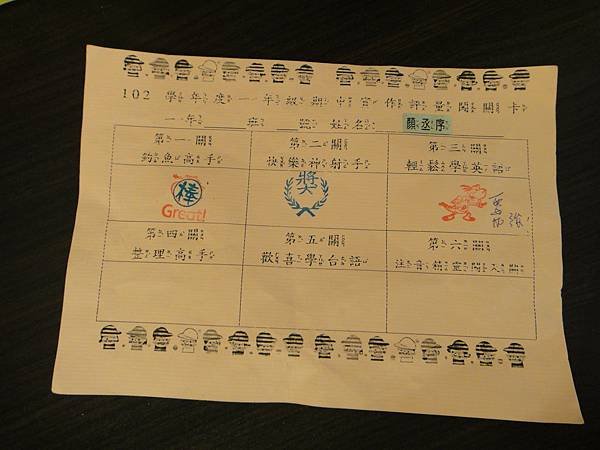 102 學年度一年級期中實作評量闖關卡
一年 班 號 姓名: 顏丞序
第一關 第二關 第三關
釣魚高手 快樂神射手 輕鬆學英語
棒 獎
Great!
第四關 第五關 第六關
整理高手 歡喜學台語 注音精靈闖天關